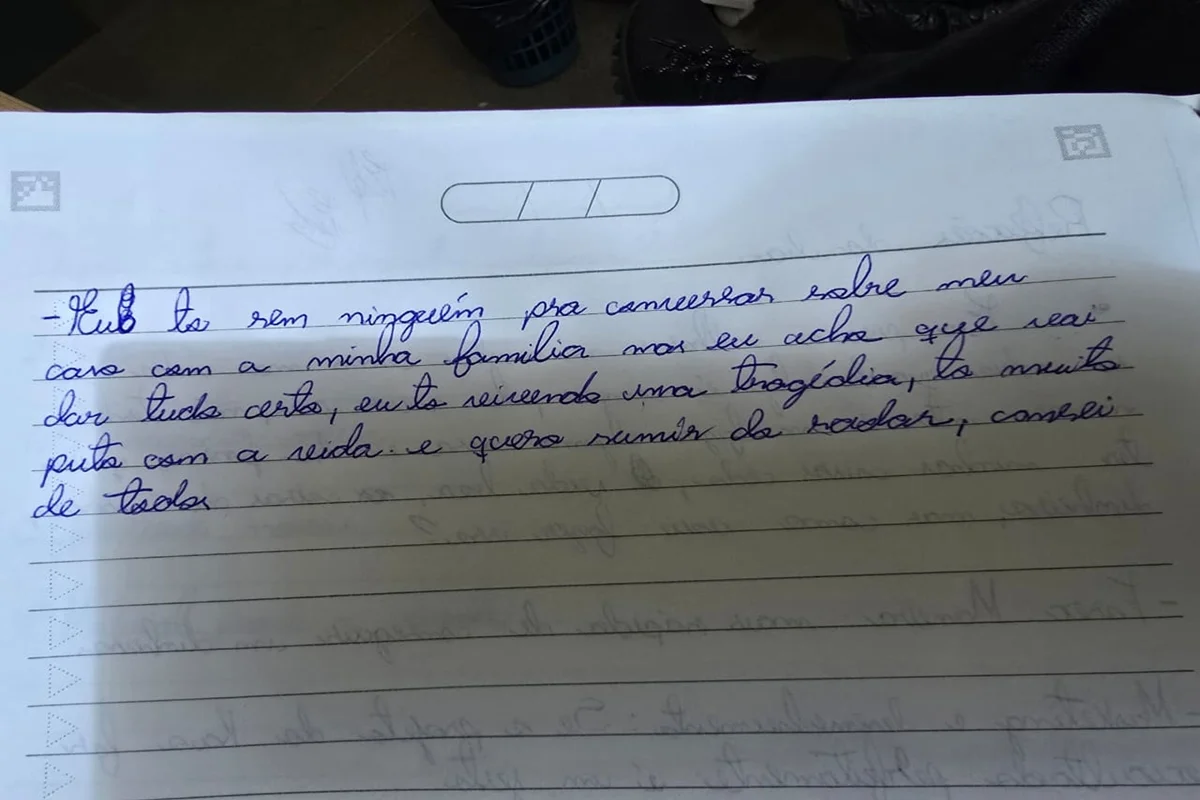 - Eu to sem ninguém pra conversar sobre meu
caso com a minha familia mas eu acho que vai
dar tudo certo, eu to vivendo uma tragédia, to muito
puto com a vida. e quero sumir do radar, cansei
de todos